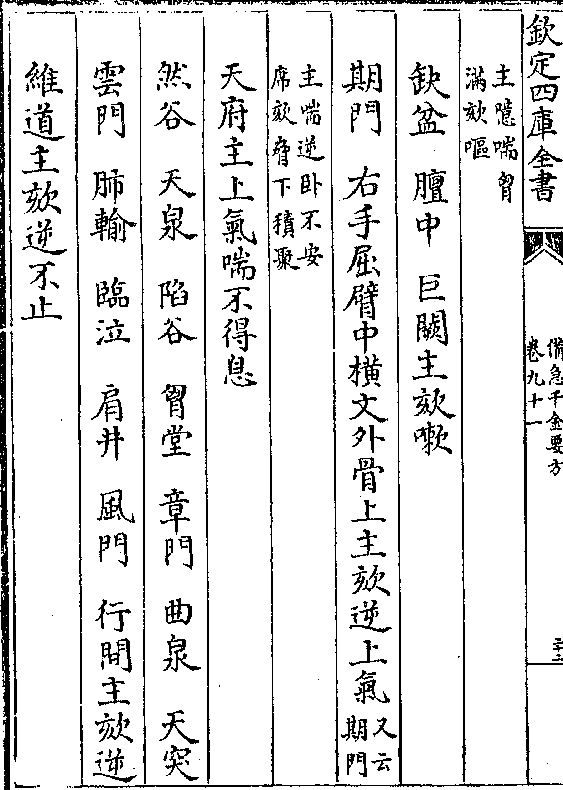 欽定四庫全書
備急千金要方
卷九十一
主噫喘胷
滿欬嘔
缺盆 膻中 巨闕主欬嗽
期門 右手屈臂中横文外骨上主欬逆上氣
又云
期門
主喘逆卧不安
席欬脅下積聚
天府主上氣喘不得息
然谷 天泉 陷谷 胷堂 章門 曲泉 天突
雲門 肺輸 臨泣 肩井 風門 行間主欬逆
維道主欬逆不止